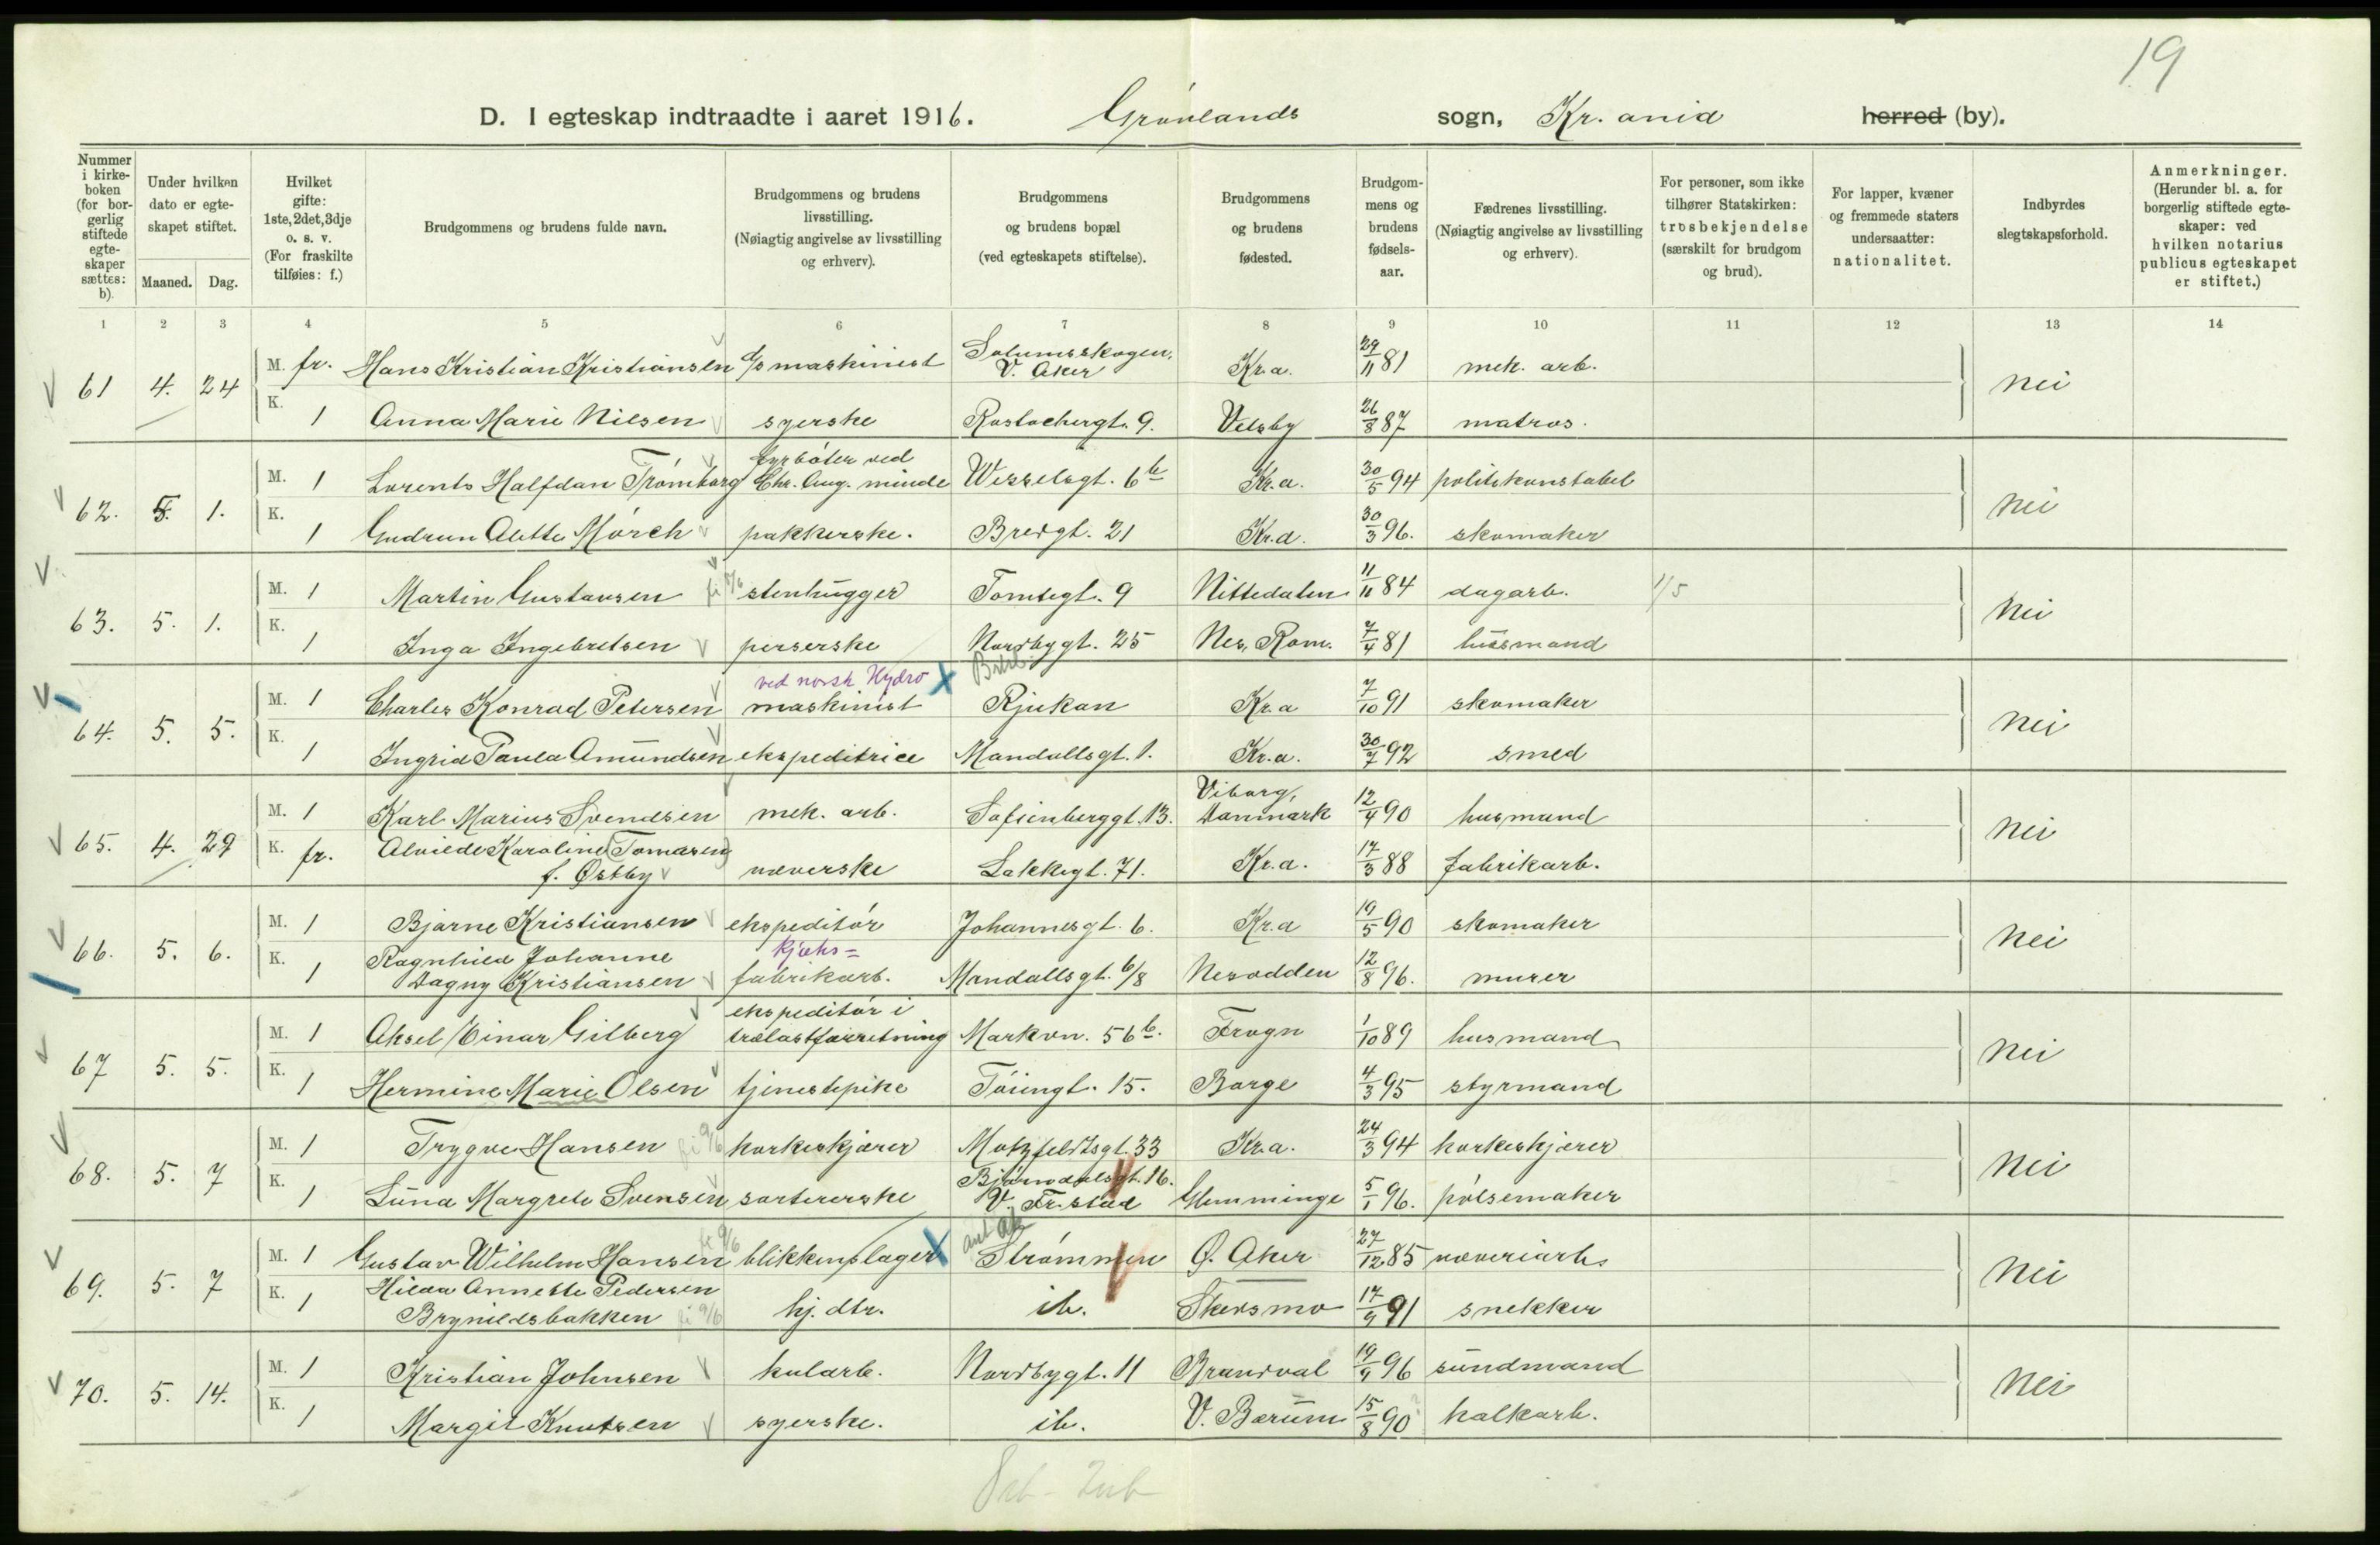 19
D. I egteskap indtraadte i aaret 1916. Grønlands sogn, Kr.ania herred (by).
Nummer i kirkeboken (for borgerlig stiftede egteskaper sættes: b).
Under hvilken dato er egteskapet stiftet.
Maaned. Dag.
Hvilket gifte: 1ste, 2det, 3dje o. s. v. (For fraskilte tilføies: f.)
Brudgommens og brudens fulde navn.
Brudgommens og brudens livsstilling. (Nøiagtig angivelse av livsstilling og erhverv).
Brudgommens og brudens bopæl (ved egteskapets stiftelse).
Brudgommens og brudens fødested.
Brudgommens og brudens fødselsaar.
Fædrenes livsstilling. (Nøiagtig angivelse av livsstilling og erhverv).
For personer, som ikke tilhører Statskirken: trosbekjendelse (særskilt for brudgom og brud).
For lapper, kvæner og fremmede staters undersaatter: nationalitet.
Indbyrdes slegtskapsforhold.
Anmerkninger. (Herunder bl. a. for borgerlig stiftede egteskaper: ved hvilken notarius publicus egteskapet er stiftet.)
1 2 3 4 5 6 7 8 9 10 11 12 13 14
61 4. 24 M. fr. Hans Kristian Kristiansen maskinist Solumsskogen, V. Aker Kr.a. 29/11 81 mek. arb. nei
K. 1 Anna Marie Nilsen syerske Rostockergt. 9. 26/8 87 matros.
62. 5. 1. M. 1 Lorents Halfdan Trømborg fyrbøter ved Chr. Aug. minde Wesselsgt. 6b Kr.a. 30/5 94 politikonstabel nei
K. 1 Gudrun Alette Mørch pakkerske. Bredgt. 21 Kr.a. 30/3 96. skomaker
63. 5. 1. M. 1 Martin Gustavsen stenhugger Tomtegt. 9 Nittedalen 11/11 84 dagarb. 1/5 nei
K. 1 Inga Ingebretsen perserske Nordbygt. 25 Nes, Rom. 7/4 81 husmand
64. 5. 5. M. 1 Charles Konrad Petersen ved norsk Hydro maskinist Rjukan Kr.a 7/10 91 skomaker nei
K. 1 Ingrid Paula Amundsen ekspeditrice Mandallsgt. 1. Kr.a. 30/7 92 smed
65. 4. 29 M. 1 Karl Marius Svendsen mek. arb. Sofienberggt. 13. Viborg, Danmark 12/4 90 husmand nei
K. fr. Alvilde Karoline (Tomasen) f. Østby væverske Lakkegt. 71. Kr.a. 17/3 88 fabrikarb.
66. 5. 6. M. 1 Bjarne Kristiansen ekspeditør Johannesgt. 6. Kr.a 19/5 90 skomaker nei
K. 1 Ragnhild Johanne Dagny Kristiansen kjæks= fabrikarb. Mandallsgt. 6/8 Nesodden 12/8 96. murer
67 5. 5. M. 1 Aksel Einar Gilberg ekspeditør i trælastforretning Markvn. 56b. Frogn 1/10 89 husmand nei
K. 1 Hermine Marie Olsen tjenestepike Tøiengt. 15. Borge 4/3 95 styrmand
68. 5. 7 M. 1 Trygve Hansen fi 9/6 korkeskjærer Motzfeldtsgt. 33 Kr.a. 24/3 94 korkeskjærer nei
K. 1 Luna Margrete Svensen sortererske Bjørndalsgt. 16. V. Fr.stad Glemminge 5/1 96. pølsemaker
69. 5. 7 M. 1 Gustav Wilhelm Hansen fi 9/6 blikkenslager Strømmen Ø. Aker 27/12 85 væveriarb. nei
K. 1 Hilda Annette Pedersen Brynildsbakken fi 9/6 hj. dtr. ib. Skedsmo 17/9 91 snekker
70. 5. 14. M. 1 Kristian Johnsen kularb. Nordbygt. 11 Brandval 19/9 96 sundmand nei
K. 1 Margit Knutsen syerske. ib. V. Bærum 15/8 90 kalkarb.